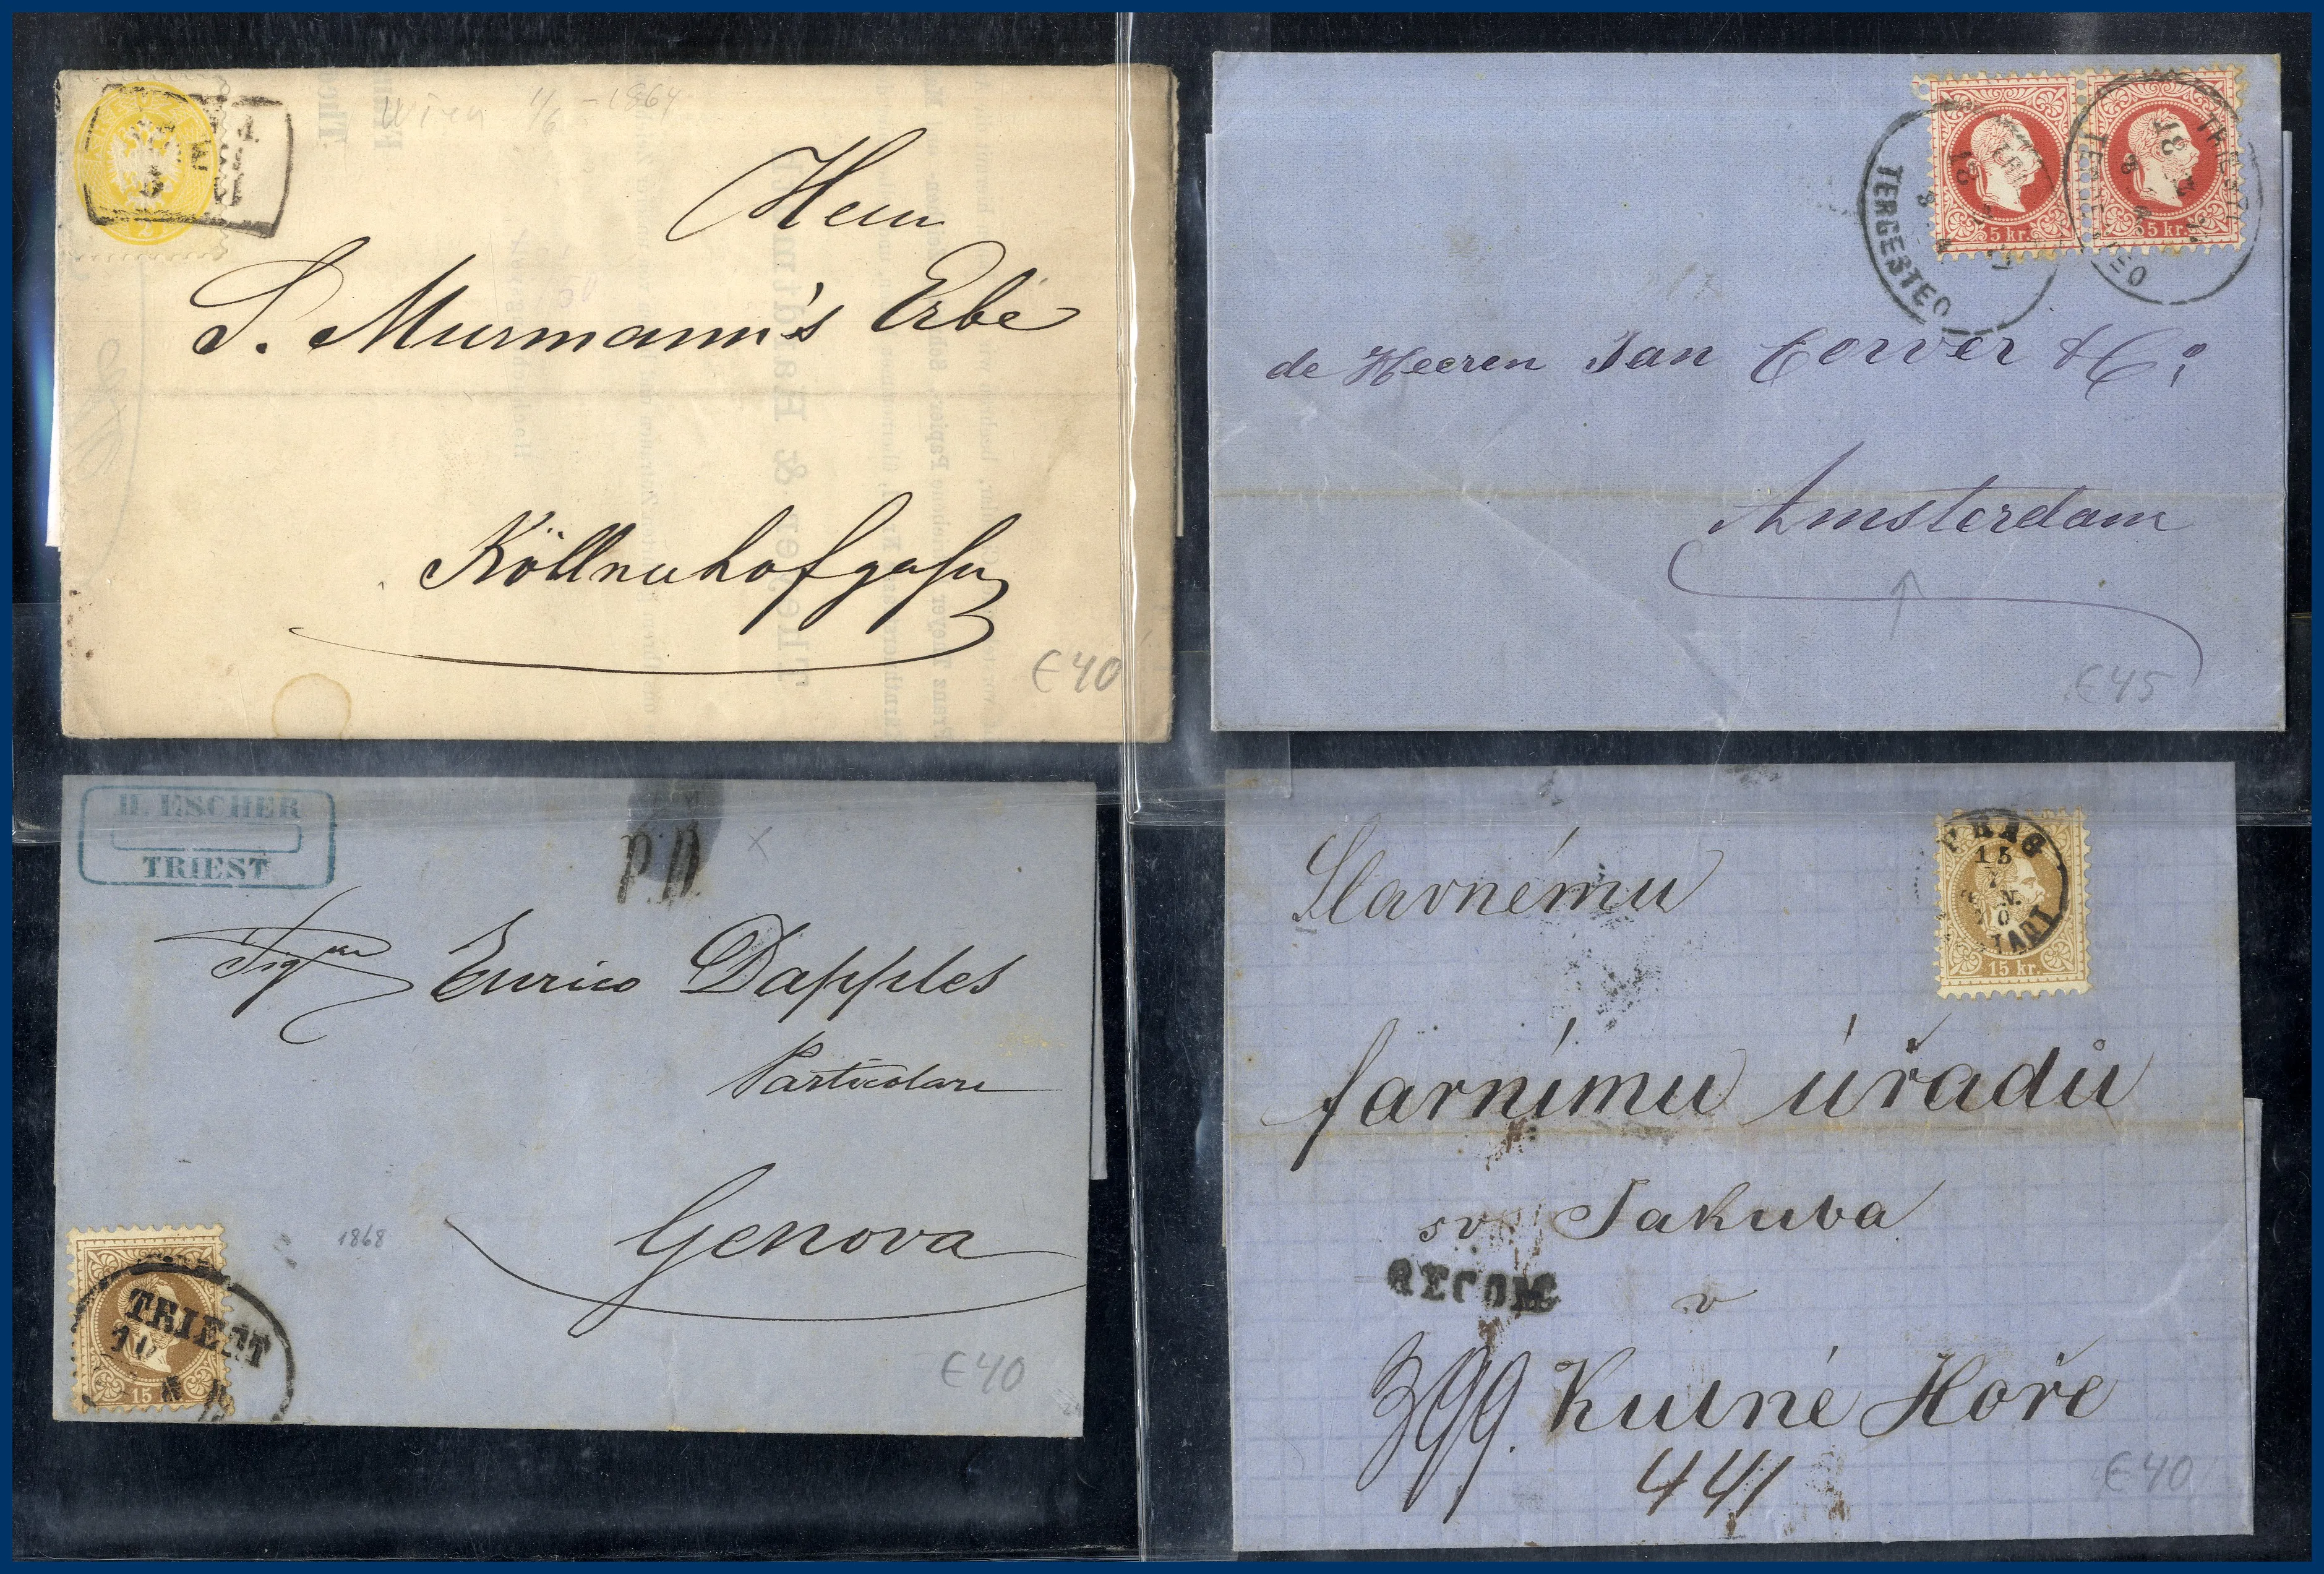 Wien 1/6 - 1864
Herrn
S. Murmann's Erbe
Köllnerhofgasse
€40
5 kr.
5 kr.
TRIEST
TERGESTEO
TERGESTEO
de Heeren Jan Corver & Co
Amsterdam
€45
H. ESCHER
TRIEST
P.D.
Sigr
Enrico Dapples
Particolare
Genova
1868
TRIEST
10
8
15
€40
PRAG
15
7
15 kr.
Slavnému
farnímu úřadu
sv Jakuba
RECOM
v
399. Kutné Hoře
441
€40